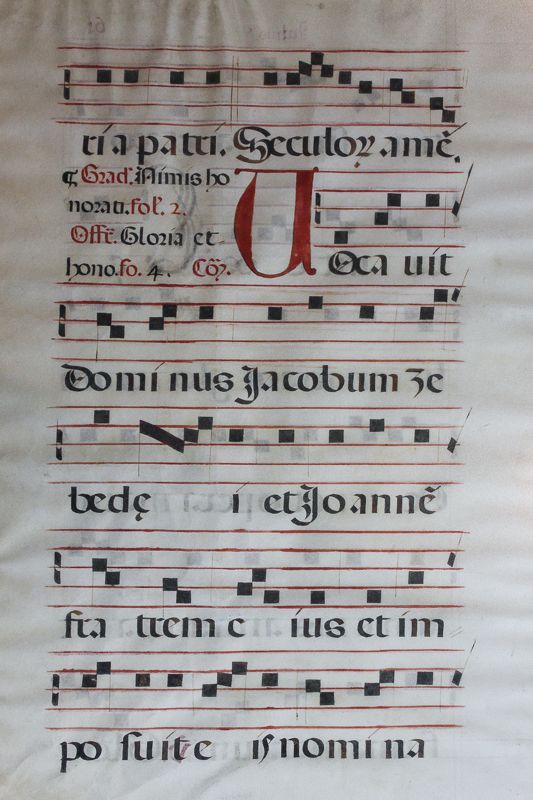 ria patri. Seculoꝝ amē.
¶ Grad. Nimis ho
norati. fol. 2.
Offr̄. Gloria et
hono. fo. 4. Cōȳ.
Voca uit
Domi nus Jacobum Ze
bedę i et Joannē
fra trem e ius et im
po suit e is nomi na